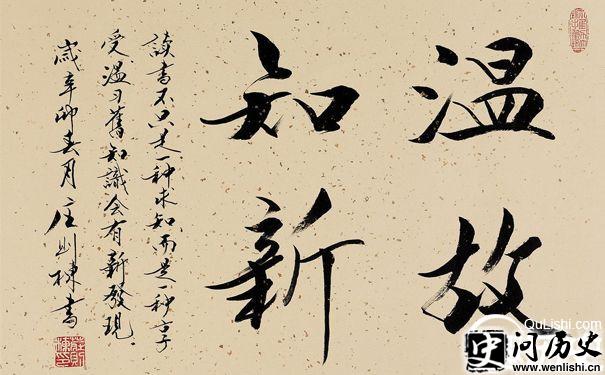 温故
知新
讀書不只是一种求知而是一种享
受温习舊知識会有新發現。
歲辛卯春月庄则棟书
QuLishi.com
问历史
www.wenlishi.cn